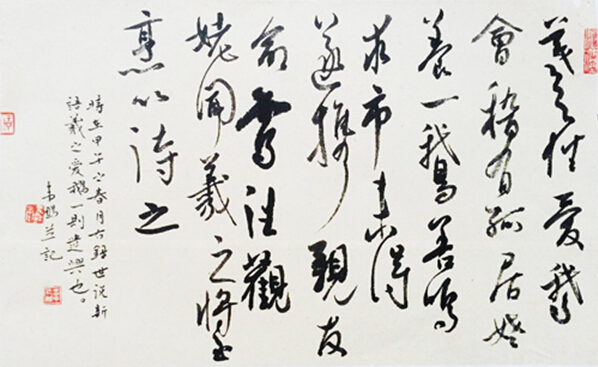 羲之性愛鵝
會稽有孤居姥
養一鵝善鳴
求市未得
遂攜親友
命駕往觀
姥聞羲之將至
烹以待之
時在甲午之春月右錄世說新
語羲之愛鵝一則遣興也。
記